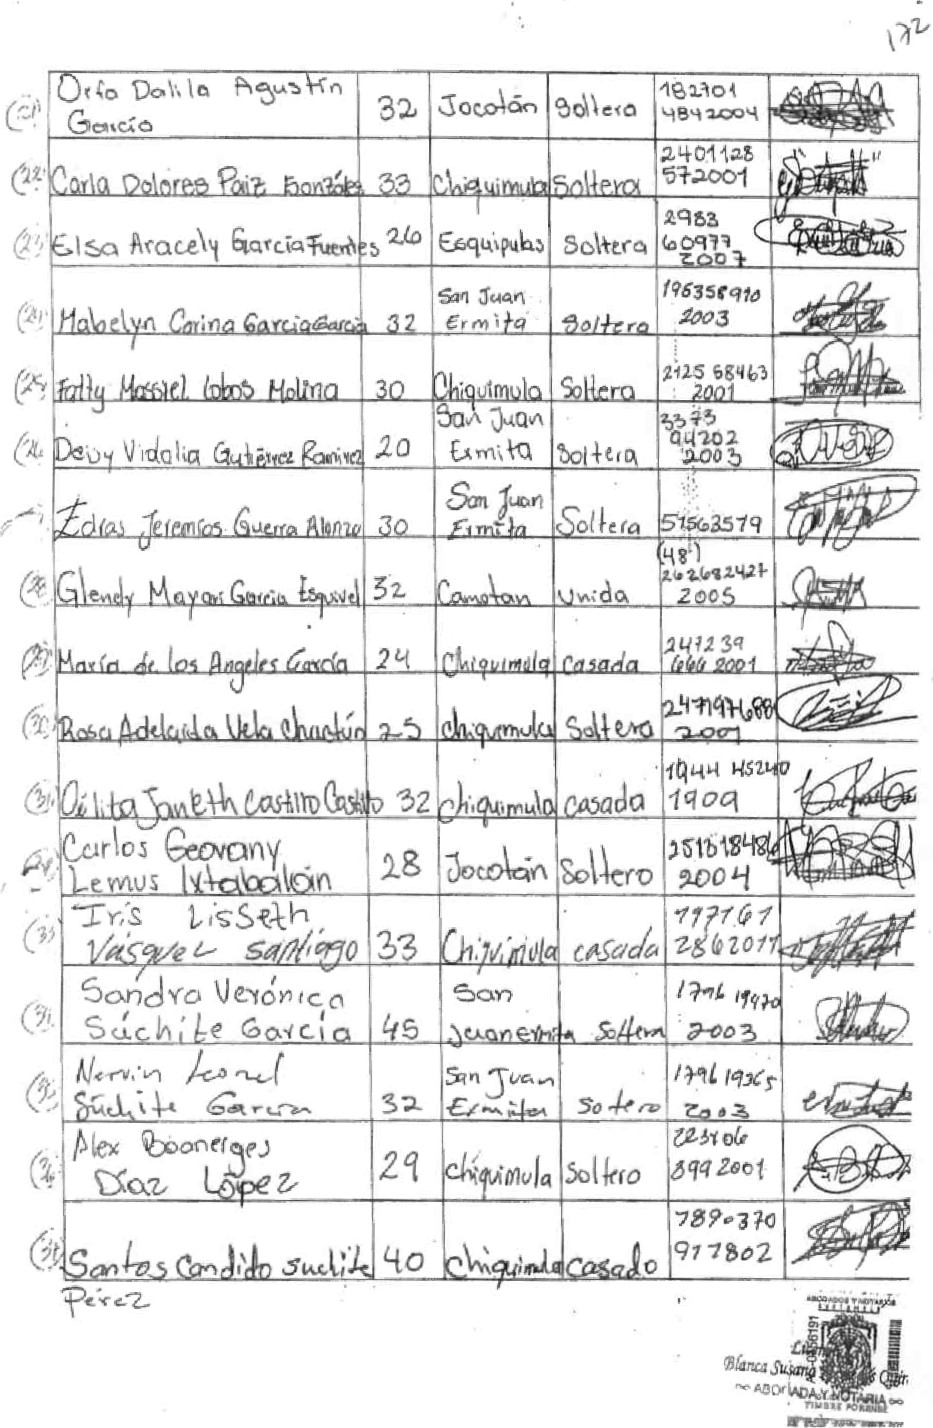 172
Orfa Dalila Agustín García 32 Jocotán Soltera 182701 4842004
(22) Carla Dolores Paiz Gonzáles 33 Chiquimula Soltera 2401128 572001
(23) Elsa Aracely García Fuentes 26 Esquipulas Soltera 2983 60977 2007
(24) Mabelyn Carina Garcia Garcia 32 San Juan Ermita Soltera 196358910 2003
(25) Fatty Massiel Lobos Molina 30 Chiquimula Soltera 2125 68463 2001
(26) Deisy Vidalia Gutiérrez Ramirez 20 San Juan Ermita Soltera 3373 94202 2003
Edras Jeremías Guerra Alonzo 30 San Juan Ermita Soltera 51563579
(28) Glendy Mayari Garcia Esquivel 32 Camotan unida (48') 262682427 2005
(29) María de los Angeles García 24 Chiquimula casada 247239 666 2001
(30) Rosa Adelaida Vela Chactún 25 chiquimula Soltera 247197688 2001
(31) Oilita Janeth Castillo Castillo 32 chiquimula casada 1944 45240 1909
Carlos Geovany Lemus Ixtabalán 28 Jocotán Soltero 25181848 2004
(33) Iris Lisseth Vásquez Santiago 33 Chiquimula casada 797761 2862011
Sandra Verónica Súchite García 45 San Juan ermita Soltera 1796 19470 2003
Nervin Leonel Súchite García 32 San Juan Ermita Sotero 1796 19365 2003
(36) Alex Boanerges Díaz López 29 chiquimula Soltero 223406 899 2001
Santos Candido suchite Pérez 40 chiquimula casado 7890370 917802
ABOGADOS Y NOTARIOS
Blanca Susana
ABOGADA Y NOTARIA
TIMBRE FORENSE